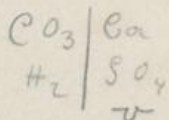 CO₃ | Ca
H₂ | SO₄